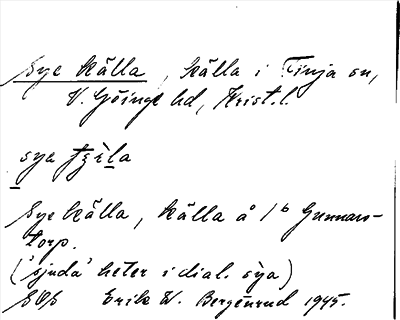 Sye källa, källa i Finja sn,
V. Göinge hd, Krist. l.
sya
Sye källa, källa å 1b Gunnars-
torp.
('sjuda' heter i dial. sya)
Erik W. Bergenrud 1945.